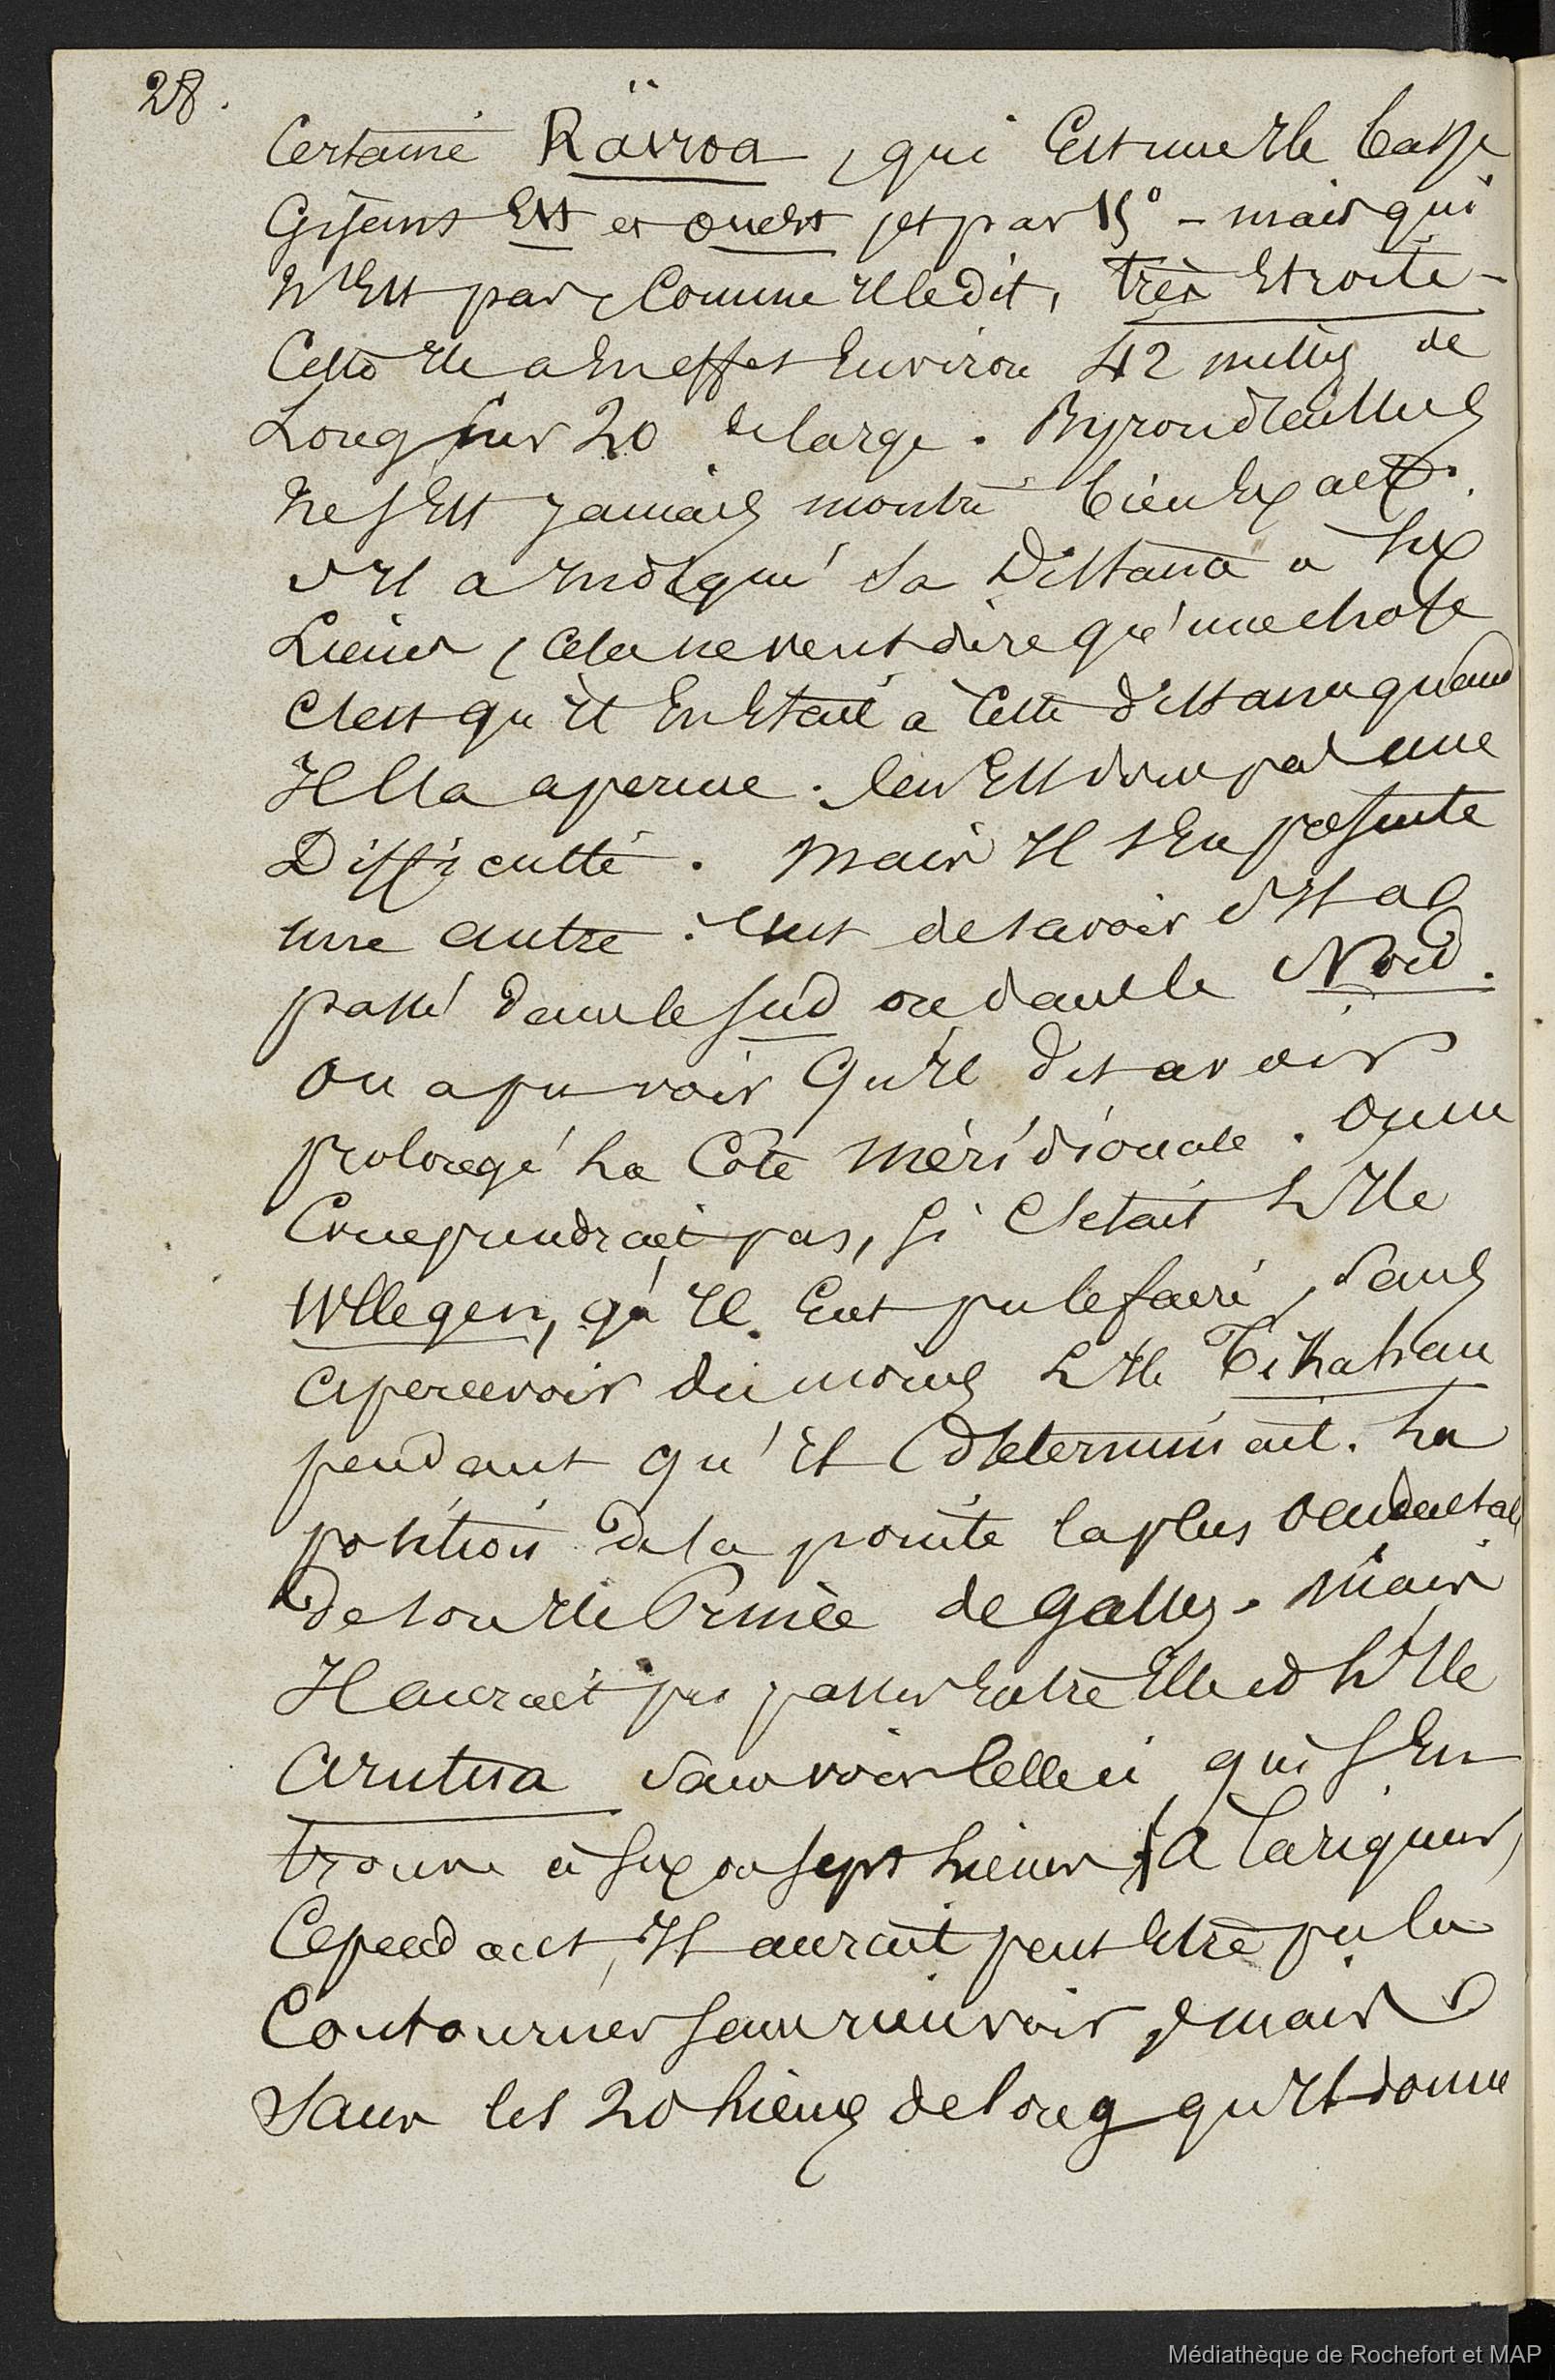 28.
Certaine Räiroa, qui Est une Ile basse
Gisant Est et Ouest, et par 15° - mais qui
N'Est pas, Comme Il le dit, très Etroite -
Cette Ile a En effet Environ 42 milles de
Long sur 20 de large. Byron d'ailleurs
ne s'Est jamais montré bien Exact.
S'Il a Indiqué sa Distance à six
Lieues, Cela ne veut dire qu'une chose
C'est qu'Il En Etait à Cette distance quand
Il l'a aperçue. Ce n'Est donc pas une
Difficulté. Mais Il s'En présente
une autre : C'est de savoir s'Il a
passé dans le Sud ou dans le Nord.
On a pu voir Qu'Il dit avoir
prolongé La Côte Méridionale. On ne
Comprendrait pas, si C'était L'Ile
Wllegen, qu'Il Eut pu le faire, sans
apercevoir du moins L'Ile Tikahau
pendant qu'Il déterminait La
position de la pointe la plus Occidentale
de son Ile Prince de Galles. Mais
Il aurait pu passer Entre Elle et L'Ile
Arutua sans voir Celle ci qui s'En
trouve à six ou sept Lieues. A la rigueur,
Cependant, Il aurait peut Etre pu la
Contourner sans rien voir, mais
Sans les 20 Lieues de long qu'Il donne
Médiathèque de Rochefort et MAP